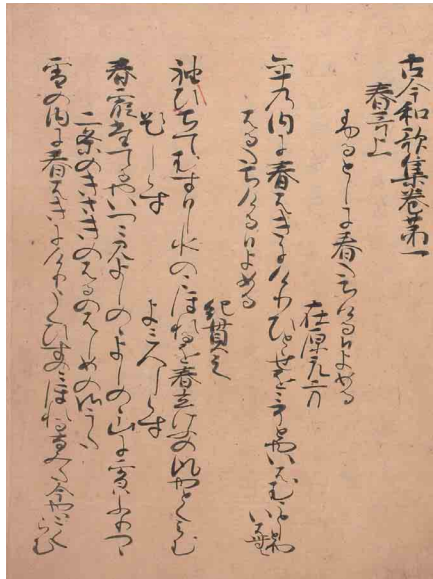 古今和歌集巻第一
春哥上
ふるとしに春たちける日よめる
在原元方
年乃内に春はきにけりひとゝせをこそとやいはむことしとや
いはむ
はるたちける日よめる
紀貫之
袖ひちてむすひし水のこほれるを春立けふの風やとくらむ
題しらす
よみ人しらす
春霞たてるやいつこみよしのゝよしのゝ山に雪はふりつゝ
二条のきさきのはるのはしめの御うた
雪の内に春はきにけりうくひすのこほれる涙今やとく
らむ